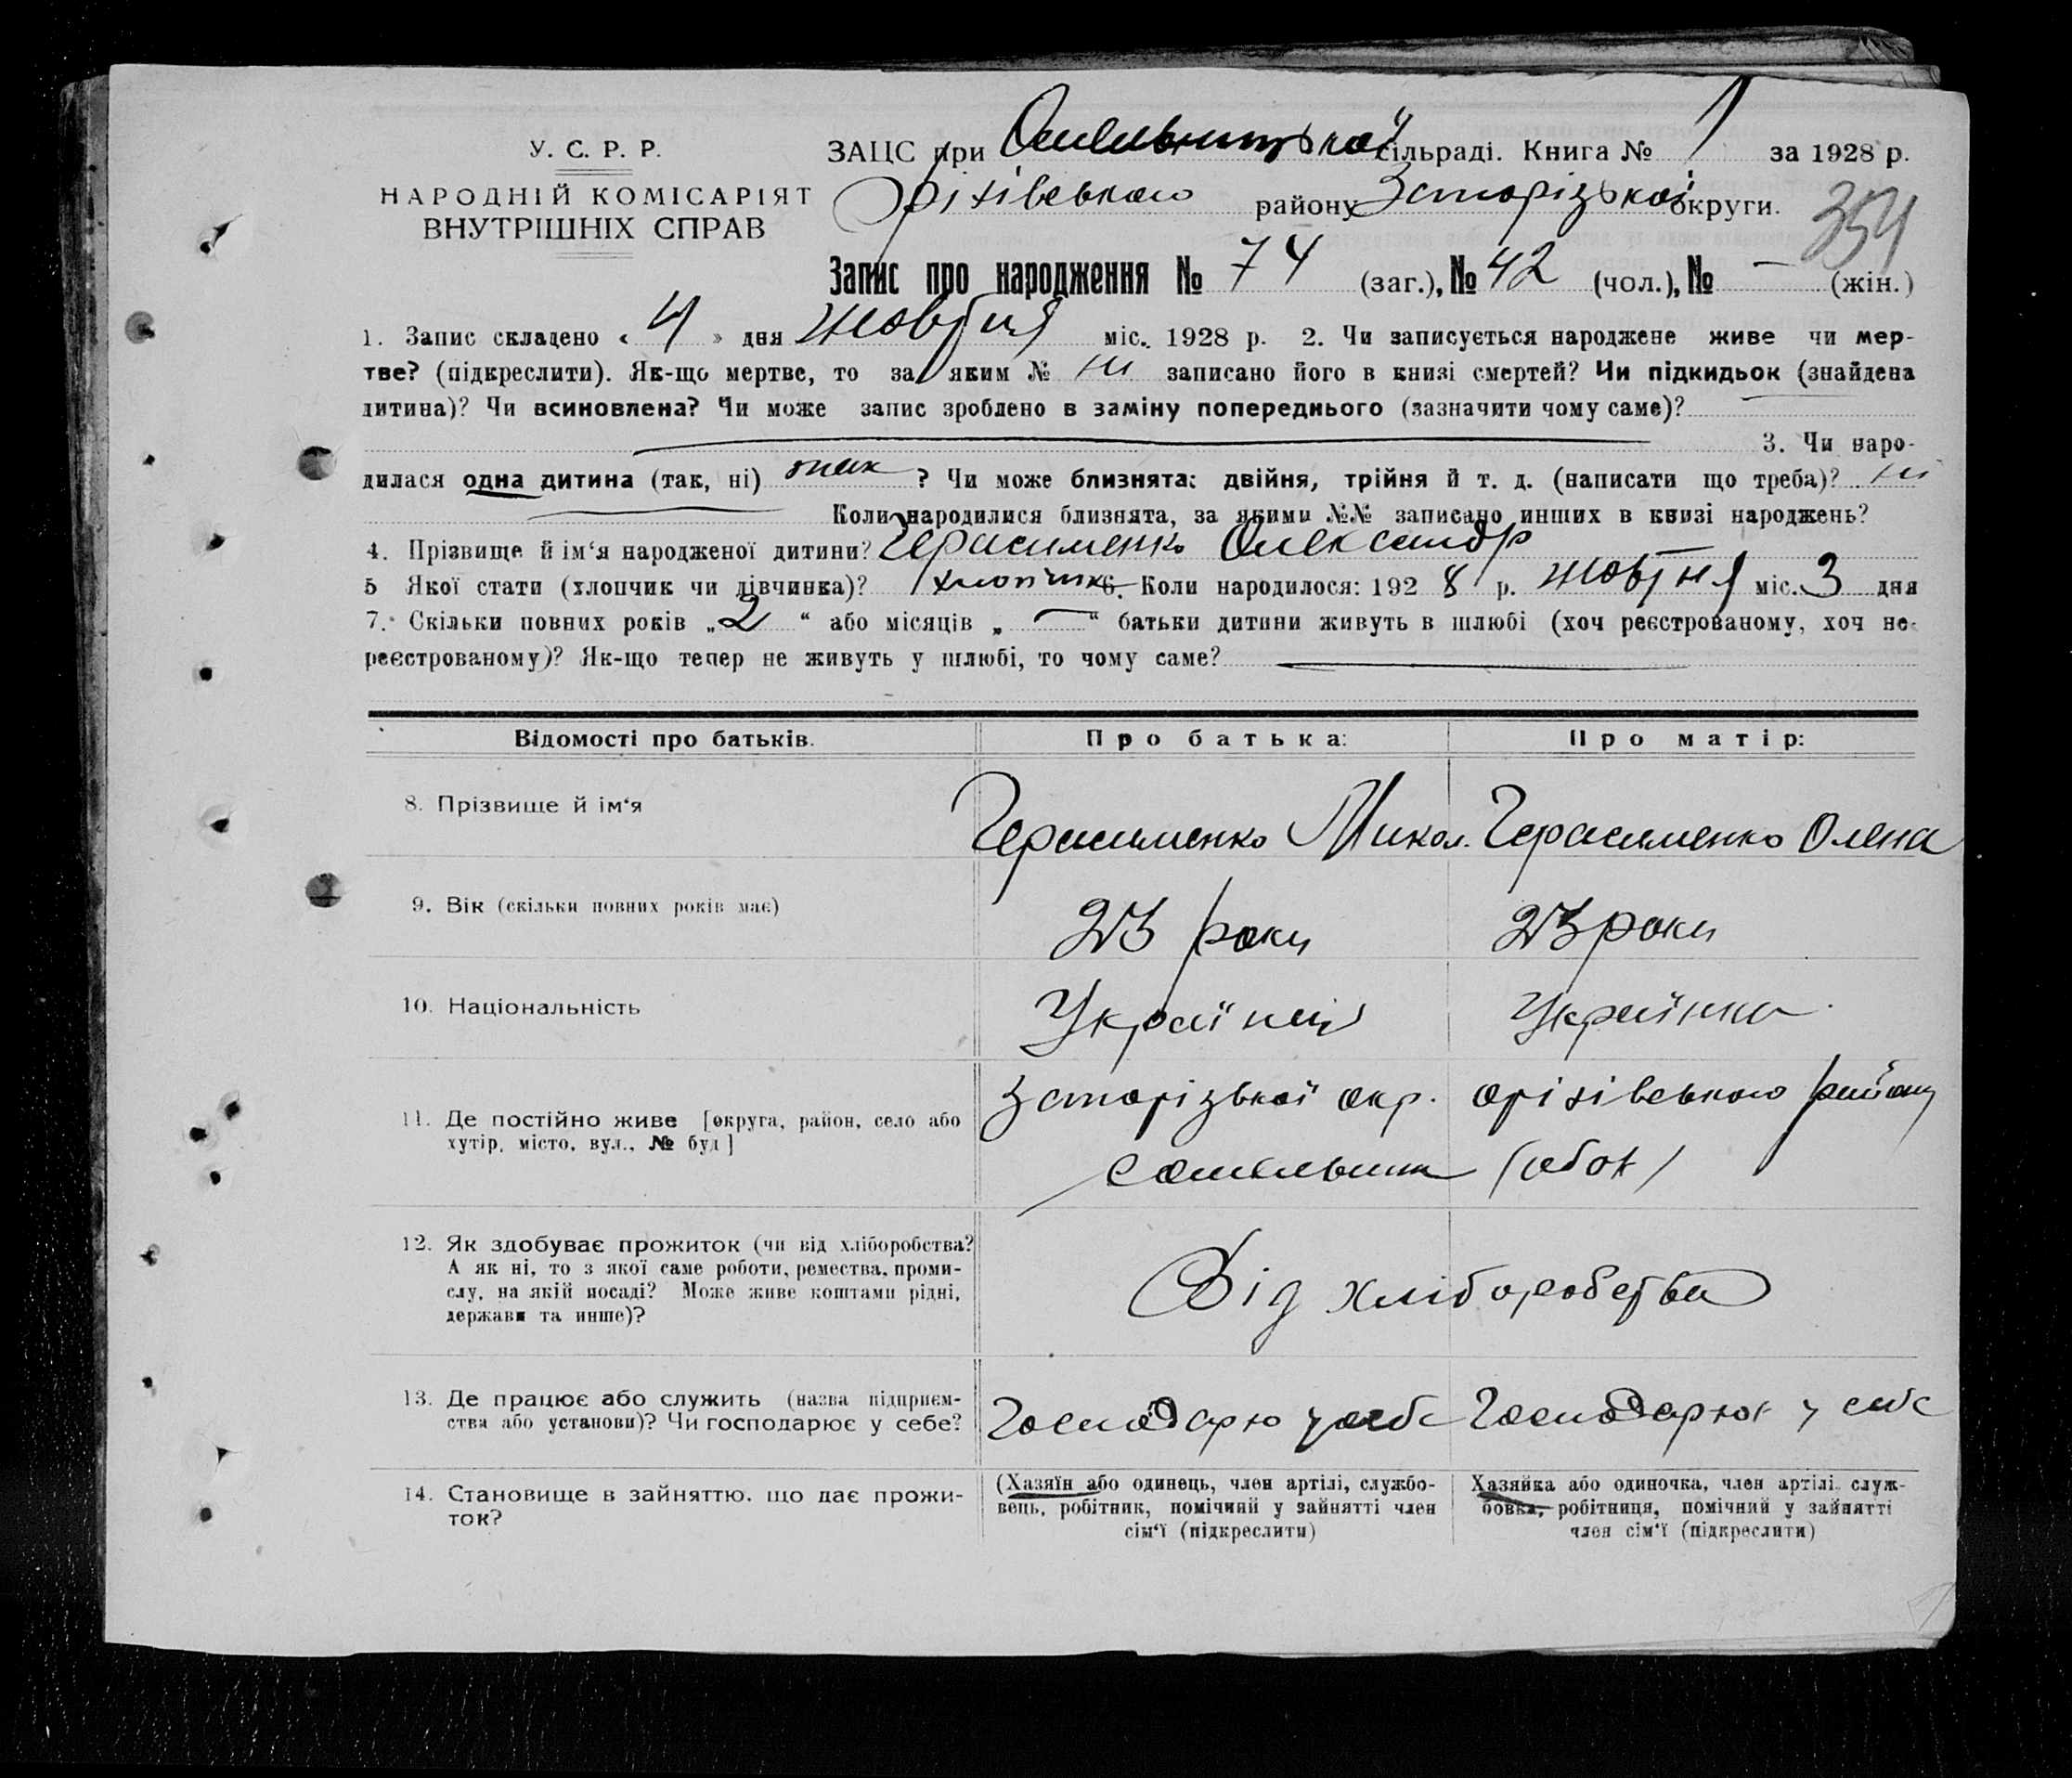 У. С. Р. Р.
НАРОДНІЙ КОМІСАРІЯТ
ВНУТРІШНІХ СПРАВ
ЗАЦС при Омельницької сільраді. Книга № 1 за 1928 р.
Оріхівського району Запорізької округи.
354
Запис про народження № 74 (заг.), № 42 (чол.), № — (жін.)
1. Запис складено « 4 » дня жовтня міс. 1928 р. 2. Чи записується народжене живе чи мер-
тве? (підкреслити). Як-що мертве, то за яким № ні записано його в книзі смертей? Чи підкидьок (знайдена
дитина)? Чи всиновлена? Чи може запис зроблено в заміну попереднього (зазначити чому саме)?
3. Чи наро-
дилася одна дитина (так, ні) так ? Чи може близнята: двійня, трійня й т. д. (написати що треба)? ні
Коли народилися близнята, за якими №№ записано инших в книзі народжень?
4. Прізвище й ім‘я народженої дитини? Герасименко Олександр
5 Якої стати (хлопчик чи дівчинка)? хлопчик 6. Коли народилося: 192 8 р. жовтня міс. 3 дня
7. Скільки повних років „ 2 “ або місяців „ — “ батьки дитини живуть в шлюбі (хоч реєстрованому, хоч не-
реєстрованому)? Як-що тепер не живуть у шлюбі, то чому саме?
Відомості про батьків. Про батька: Про матір:
8. Прізвище й ім‘я Герасименко Микол. Герасименко Олена
9. Вік (скільки повних років має) 23 роки 23 роки
10. Національність Українец Українка
11. Де постійно живе [округа, район, село або
хутір, місто, вул., № буд]
Запорізької окр. Оріхівського району
с Омельник
12. Як здобуває прожиток (чи від хліборобства?
А як ні, то з якої саме роботи, ремества, проми-
слу, на якій посаді? Може живе коштами рідні,
держави та инше)?
Від хліборобства
13. Де працює або служить (назва підприєм-
ства або установи)? Чи господарює у себе?
Господарю у себе Господарює у себе
14. Становище в зайняттю, що дає прожи-
ток?
(Хазяїн або одинець, член артілі, службо-
вець, робітник, помічний у зайнятті член
сім‘ї (підкреслити)
Хазяйка або одиночка, член артілі, служ-
бовка, робітниця, помічний у зайнятті
член сім‘ї (підкреслити)